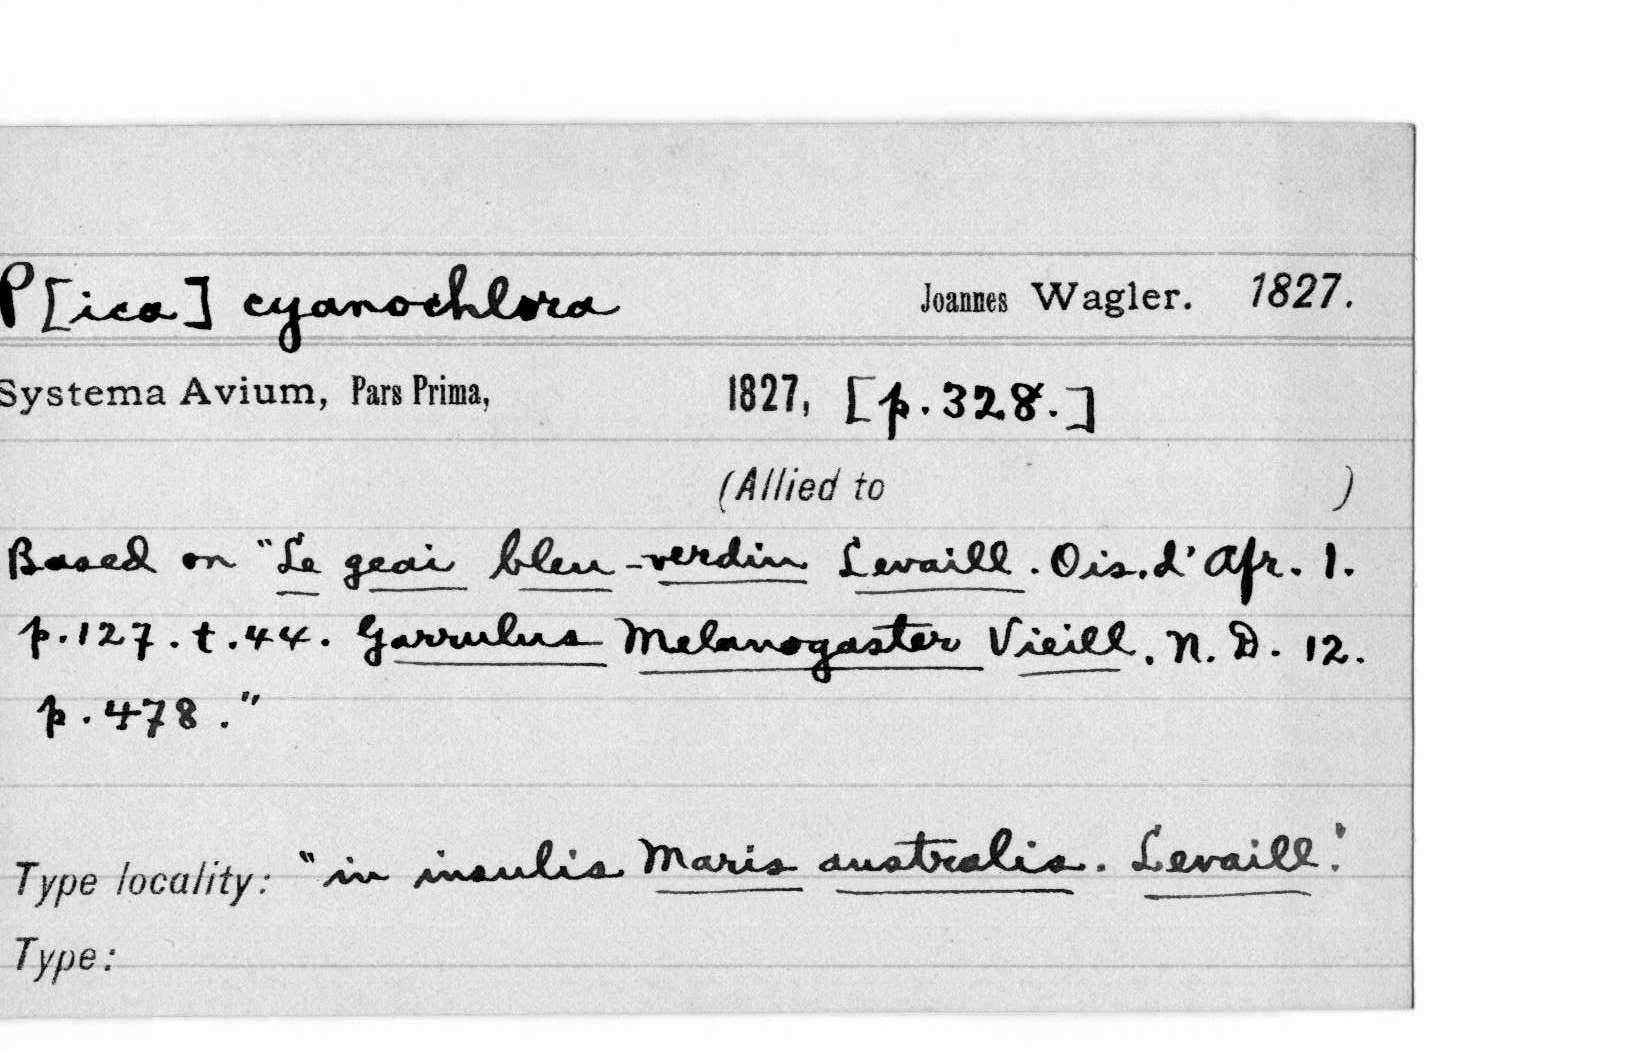 P[ica] cyanochlora Joannes Wagler. 1827.
Systema Avium, Pars Prima, 1827, [p.328.]
(Allied to )
Based on "Le geai bleu-verdin Levaill. Ois. d'Afr. 1.
p.127. t.44. Garrulus Melanogaster Vieill. N. D. 12.
p.478."
Type locality: "in insulis Maris australis. Levaill."
Type: